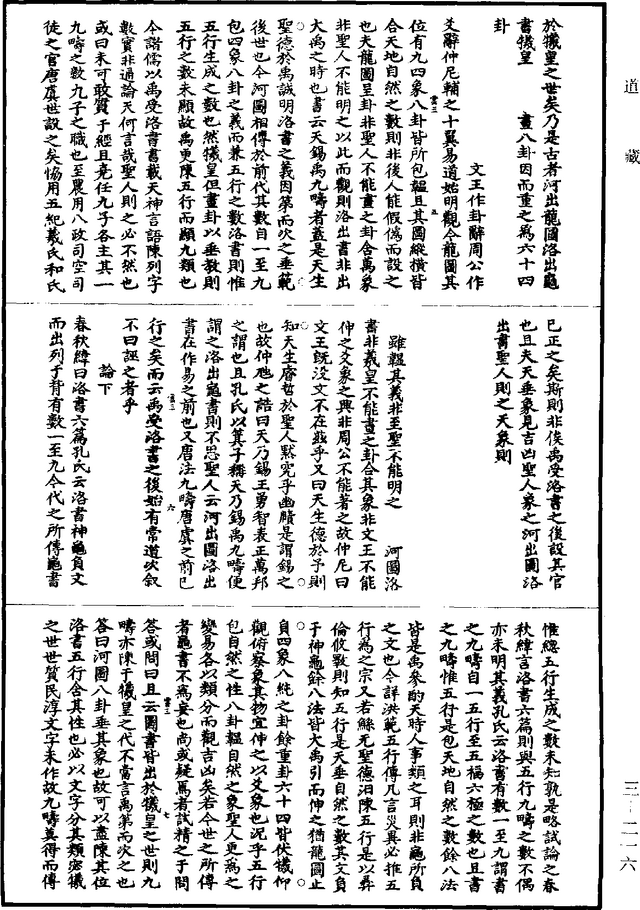 道藏
於犧皇之世矣乃是古者河出龍圖洛出龜
書犧皇 畫八卦因而重之為六十四
卦
文王作卦辭周公作
爻辭仲尼輔之十翼易道始明觀今龍圖其
位有九四象八卦皆所包韞且其圖縱橫皆
合天地自然之數則非後人能假偽而設之
也夫龍圖呈卦非聖人不能畫之卦含萬象
非聖人不能明之以此而觀則洛出書非出
大禹之時也書云天錫禹九疇者蓋是天生
聖德於禹誠明洛書之義因第而次之垂範
後世也今河圖相傳於前代其數自一至九
包四象八卦之義而兼五行之數洛書則惟
五行生成之數也然犧皇但畫卦以垂教則
五行之數未顯故禹更陳五行而顯九類也
今諸儒以禹受洛書書載天神言語陳列字
數實非通論天何言哉聖人則之必不然也
或曰未可敢質于經且堯任九子各主其一
九疇之數九子之職也至農用八政司空司
徒之官唐虞世設之矣協用五紀羲氏和氏
已正之矣斯則非俟禹受洛書之後設其官
也且夫天垂象見吉凶聖人象之河出圖洛
出書聖人則之天象則
雖韞其義非至聖不能明之 河圖洛
書非羲皇不能畫之卦合其象非文王不能
伸之爻象之興非周公不能著之故仲尼曰
文王既没文不在兹乎又曰天生德於予則
知天生睿哲於聖人默究乎幽賾是謂錫之
也故仲虺之誥曰天乃錫王勇智表正萬邦
之謂也且孔氏以箕子稱天乃錫禹九疇便
謂之洛出龜書則不思聖人云河出圖洛出
書在作易之前也又唐法九疇唐虞之前已
行之矣而云禹受洛書之後始有常道攸叙
不曰誣之者乎
論下
春秋緯曰洛書六篇孔氏云洛書神龜負文
而出列于背有數一至九今代之所傳龜書
惟總五行生成之數未知孰是略試論之春
秋緯言洛書六篇則與五行九疇之數不偶
亦未明其義孔氏云洛書有數一至九謂書
之九疇自一五行至五福六極之數也且書
之九疇惟五行是包天地自然之數餘八法
皆是禹參酌天時人事類之耳則非龜所負
之文也今詳洪範五行傳凡言災異必推五
行為之宗又若鯀无聖德汨陳五行是以彝
倫攸斁則知五行是天垂自然之數其文負
于神龜餘八法皆大禹引而伸之猶龍圖止
負四象八純之卦餘重卦六十四皆伏犧仰
觀俯察象其物宜伸之以爻象也況乎五行
包自然之性八卦韞自然之象聖人更為之
變易各以類分而觀吉凶矣若今世之所傳
者龜書不為妄也尚或疑焉者試精之于問
答或問曰且云圖書皆出於犧皇之世則九
疇亦陳于犧皇之代不當言禹第而次之也
答曰河圖八卦垂其象也故可以盡陳其位
洛書五行含其性也必以文字分其類宓犧
之世世質民淳文字未作故九疇莫得而傳
三-二一六